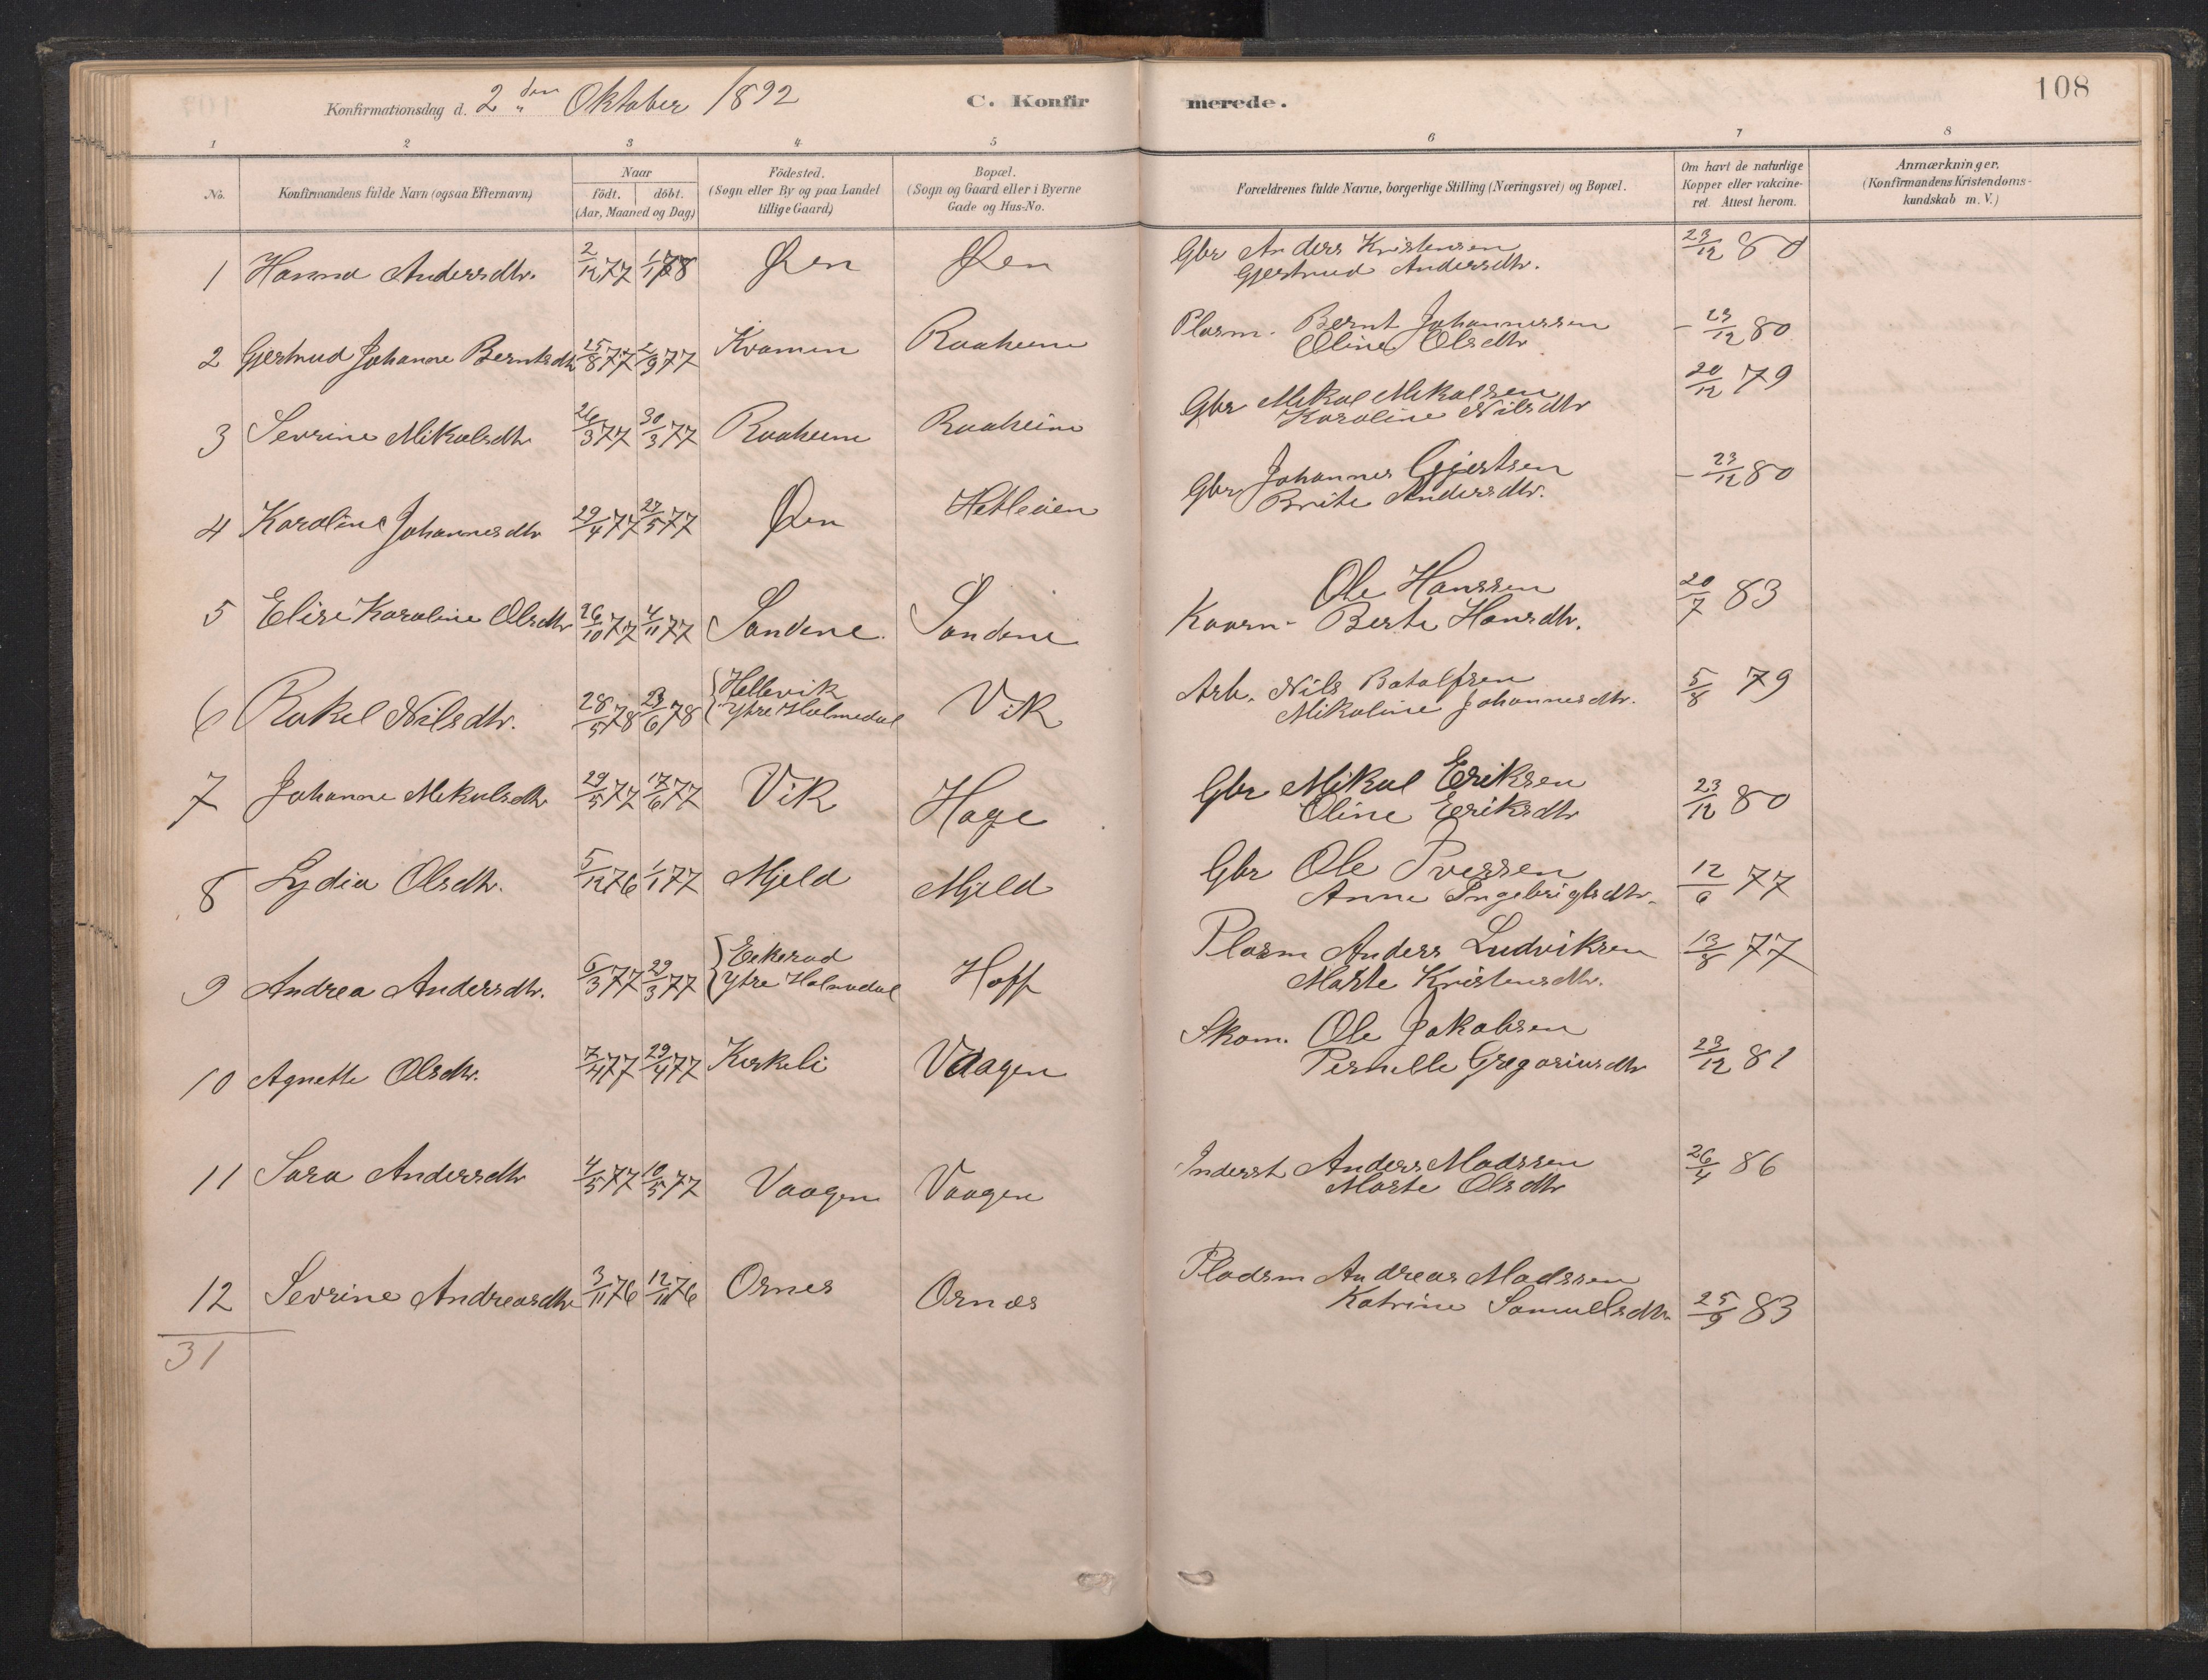 Konfirmationsdag d. 2 den Oktober 1892 C. Konfirmerede. 108
1 2 3 4 5 6 7 8
No. Konfirmandens fulde Navn (ogsaa Efternavn) Naar födt. döbt. (Aar, Maaned og Dag) Födested. (Sogn eller By og paa Landet tillige Gaard) Bopæl. (Sogn og Gaard eller i Byerne Gade og Hus-No. Forældrenes fulde Navne, borgerlige Stilling (Næringsvei) og Bopæl. Om havt de naturlige Kopper eller vakcineret. Attest herom. Anmærkninger. (Konfirmandens Kristendomskundskab m. V.)
1 Hanna Andersdtr. 2/12 77 1/1 78 Øen Øen Gbr Anders Kristensen 23/12 80
Gjertrud Andersdtr.
2 Gjertrud Johanne Berntsdtr 25/8 77 2/9 77 Kvamen Raaheim Plasm. Bernt Johannessen - 23/12 80
Oline Olsdtr
3 Sevrine Mikalsdtr 26/3 77 30/3 77 Raaheim Raaheim Gbr Mikal Mikalsen 20/12 79
Karoline Nilsdtr
4 Karoline Johannesdtr 29/4 77 27/5 77 Øen Hetleøen Gbr Johannes Gjertsen - 23/12 80
Brite Andersdtr.
5 Elise Karoline Olsdtr 26/10 77 4/11 77 Sandene Sandene Ole Hanssen 20/7 83
Kaarn- Berte Hansdtr.
6 Rakel Nilsdtr. 28/5 78 23/6 78 Hellevik Ytre Holmedal Vik Arb. Nils Batalfsen 5/8 79
Mikaline Johannesdtr.
7 Johanne Mikalsdtr 29/5 77 17/6 77 Vik Hage Gbr Mikal Eriksen 23/12 80
Oline Eeriksdtr
8 Lydia Olsdtr. 5/12 76 1/1 77 Mjeld Mjeld Gbr Ole Iverssen 12/6 77
Anne Ingebrigtsdtr.
9 Andrea Andersdtr. 6/3 77 29/3 77 Eikerad Ytre Holmedal Hoff Plasm Anders Ludviksen 13/8 77
Marte Kristensdtr.
10 Agnette Olsdtr. 7/4 77 29/4 77 Kirkeli Vaagen Skom. Ole Jakobsen 23/12 81
Pernelle Gregoriusdtr
11 Sara Andersdtr 4/5 77 10/5 77 Vaagen Vaagen Inderst Anders Madssen 26/4 86
Marte Olsdtr
12 Sevrine Andreasdtr 3/11 76 12/11 76 Ornes Ornæs Pladsm Andreas Madssen
Katrine Samuelsdtr. 25/9 83
31